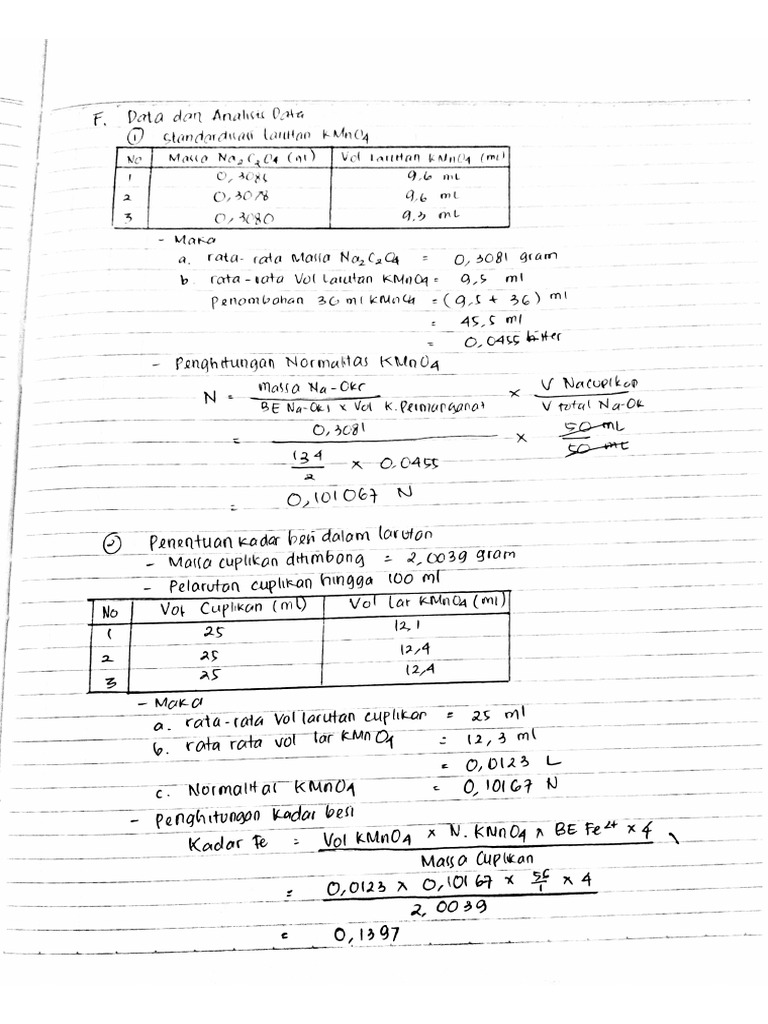 F. Data dan Analisis Data
① Standardisasi larutan KMnO4
No | Massa Na2C2O4 (gr) | Vol larutan KMnO4 (ml)
1 | 0,3086 | 9,6 mL
2 | 0,3078 | 9,6 mL
3 | 0,3080 | 9.3 mL
- Maka
a. rata-rata Massa Na2C2O4 = 0,3081 gram
b. rata-rata Vol larutan KMnO4 = 9,5 ml
Penambahan 36 ml KMnO4 = (9,5 + 36) ml
= 45,5 ml
= 0,0455 liter
- Penghitungan Normalitas KMnO4
N = massa Na-Okr / BE Na-Okl x Vol K.Permanganat x V Nacuplikan / V total Na-Ok
= 0,3081 / 134/2 x 0,0455 x 50 mL / 50 mL
= 0,101067 N
② Penentuan kadar besi dalam larutan
- Massa cuplikan ditimbang = 2,0039 gram
- Pelarutan cuplikan hingga 100 ml
No | Vol Cuplikan (ml) | Vol lar KMnO4 (ml)
1 | 25 | 12,1
2 | 25 | 12,4
3 | 25 | 12,4
- Maka
a. rata-rata Vol larutan cuplikan = 25 ml
b. rata rata vol lar KMnO4 = 12,3 ml
= 0,0123 L
c. Normalitas KMnO4 = 0,10167 N
- Penghitungan kadar besi
Kadar Fe = Vol KMnO4 x N. KMnO4 x BE Fe2+ x 4 / Massa Cuplikan
= 0,0123 x 0,10167 x 56/1 x 4 / 2,0039
= 0,1397